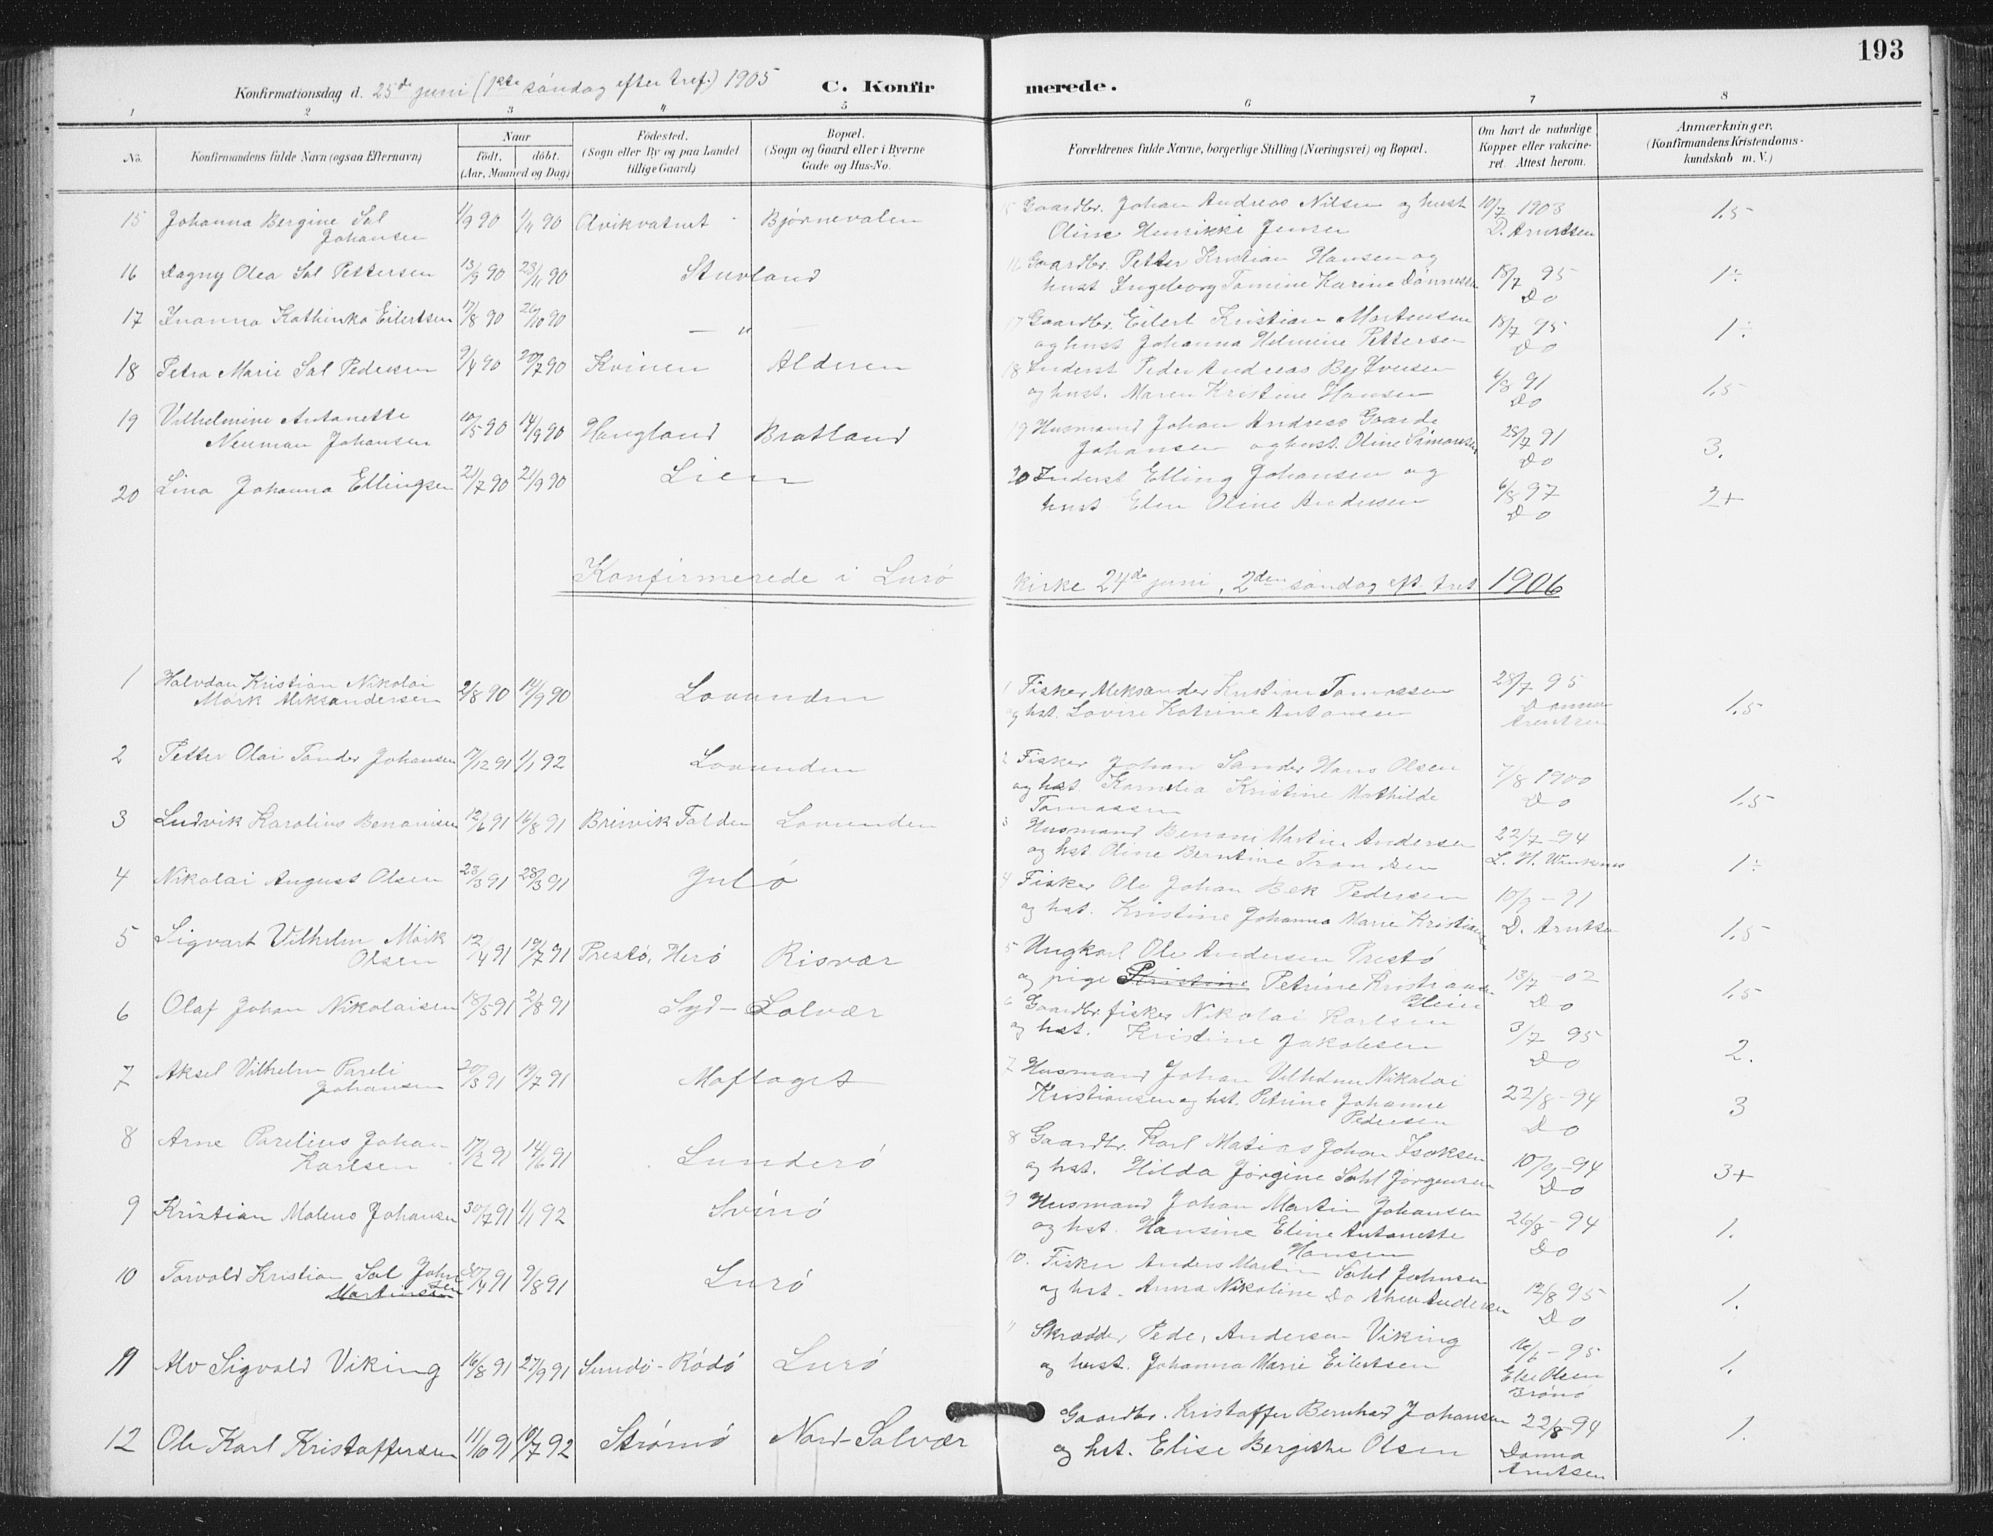 193
Konfirmationsdag d. 25de juni (1ste søndag efter tref.) 1905 C. Konfirmerede.
1 2 3 4 5 6 7 8
No. Konfirmandens fulde Navn (ogsaa Efternavn) Naar født. døbt. (Aar, Maaned og Dag) Fødested. (Sogn eller By og paa Landet tillige Gaard) Bopæl. (Sogn og Gaard eller i Byerne Gade og Hus-No. Forældrenes fulde Navne, borgerlige Stilling (Næringsvei) og Bopæl. Om havt de naturlige Kopper eller vakcineret. Attest herom. Anmærkninger. (Konfirmandens Kristendomskundskab m. V.)
15 Johanna Bergine Sal Johansen 1/9 90 1/11 90 Olvikvatnet Bjørnevalen Gaardbr. Johan Andreas Nilsen og hust Oline Henrikke Jensen 10/7 1903 D. Arntsen 1.5
16 Dagny Olea Sal Pettersen 13/9 90 23/11 90 Stuvland Gaardbr. Petter Kristian Hansen og hust Ingeborg Tomine Karine Dønnesen 18/7 95 Do 1÷
17 Inanna Kathinka Eilertsen 17/8 90 26/10 90 — " — Gaardbr. Eilert Kristian Martensen og hust Johanna Helmine Pettersen 18/7 95 Do 1÷
18 Petra Marie Sal Pedersen 9/4 90 20/7 90 Kvinen Alderen Inderst Peder Andreas Bej Iversen og hust. Maren Kristine Hansen 6/8 91 Do 1.5
19 Vilhelmine Antonette Neuman Johansen 10/5 90 14/9 90 Haugland Bratland Husmand Johan Andreas Gaarde Johansen og hust. Oline Simonsen 28/7 91 Do 3.
20 Lina Johanna Ellingsen 21/7 90 21/9 90 Lien Inderst Elling Johansen og hust. Elen Oline Andersen 6/8 97 Do 2+
Konfirmerede i Lurø kirke 24de juni, 2den søndag eft. tref 1906
1 Halvdan Kristian Nikolai Mørk Aleksandersen 2/8 90 14/9 90 Lovunden Fisker Aleksander Kristian Tomassen og hst. Lovise Katrine Antonsen 28/7 95 Danna Arentsen 1.5
2 Petter Olai Sander Johansen 17/12 91 1/1 92 Lovunden Fisker Johan Sander Hans Olsen og hst Kornelia Kristine Mathilde Tomassen 7/8 1900 Do 1.5
3 Ludvik Karolius Benonisen 12/6 91 16/8 91 Breivik Folden Lovunden Husmand Benoni Martin Andersen og hst Oline Berntine Trondsen 22/7-94 L. H. 1÷
4 Nikolai August Olsen 23/3 91 28/3 91 Julø Fisker Ole Johan Bek Pedersen og hst. Kristine Johanna Marie Kristiansen 10/9-91 D. Arntsen 1.5
5 Sigvart Vilhelm Mørk Olsen 12/4 91 19/7 91 Prestø, Herø Risvær Ungkarl Ole Andersen Prestø og pige Petrine Kristiansen 13/7-02 Do 1.5
6 Olaf Johan Nikolaisen 18/5 91 2/8 91 Syd-Solvær Gaardbr. fisker Nikolai Karlsen og hst. Kristine Jakobsen 3/7 95 Do 2.
7 Aksel Vilhelm Pareli Johansen 20/3 91 19/7 91 Moflaget Husmand Johan Vilhelm Nikolai Kristiansen og hst. Petrine Johanne Pedersen 22/8-94 Do 3
8 Arne Parelius Johan Karlsen 17/2 91 14/6 91 Lunderø Gaardbr. Karl Matias Johan Isaksen og hst. Hilda Jørgine Sahl Jørgensen 10/9-94 Do 3+
9 Kristian Moleus Johansen 30/7 91 1/1 92 Svinø Husmand Johan Martin Johansen og hst. Hansine Eline Antonette Hansen 26/8-94 Do 1.
10 Torvald Kristian Sal Johnsen Martinsen 30/4 91 9/8 91 Lurø Fisker Anders Martin Sahl Johnsen og hst. Anna Nikoline Do Andersen 12/8 95 Do 1.
11 Alv Sigvald Viking 16/8 91 27/9 91 Sundø-Rødø Lurø Skrædder Peder Andersen Viking og hust. Johanna Marie Eilertsen 16/6-95 Else Olsen Brønø 1.
12 Ole Karl Kristoffersen 11/10 91 10/7 92 Strømø Nord-Solvær Gaardbr. Kristoffer Bernhard Johansen og hst. Elise Bergithe Olsen 22/8-94 Danna Arntsen 1.